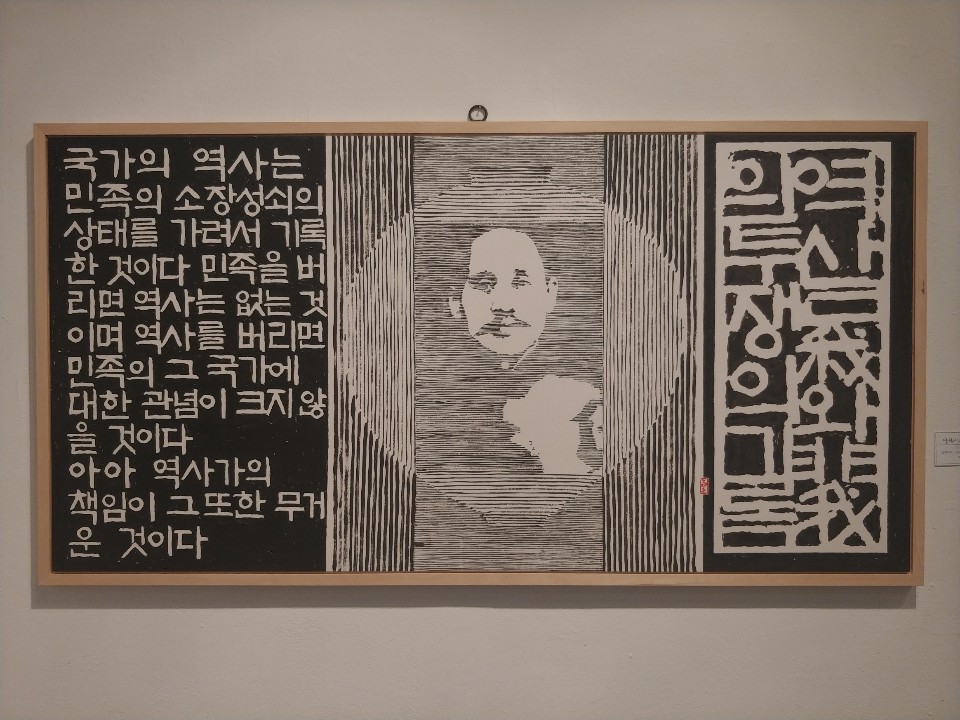 국가의 역사는
민족의 소장성쇠의
상태를 가려서 기록
한 것이다 민족을 버
리면 역사는 없는 것
이며 역사를 버리면
민족의 그 국가에
대한 관념이 크지않
을 것이다
아아 역사가의
책임이 그또한 무거
운 것이다
역사는 我와 非我
의 투쟁의 기록